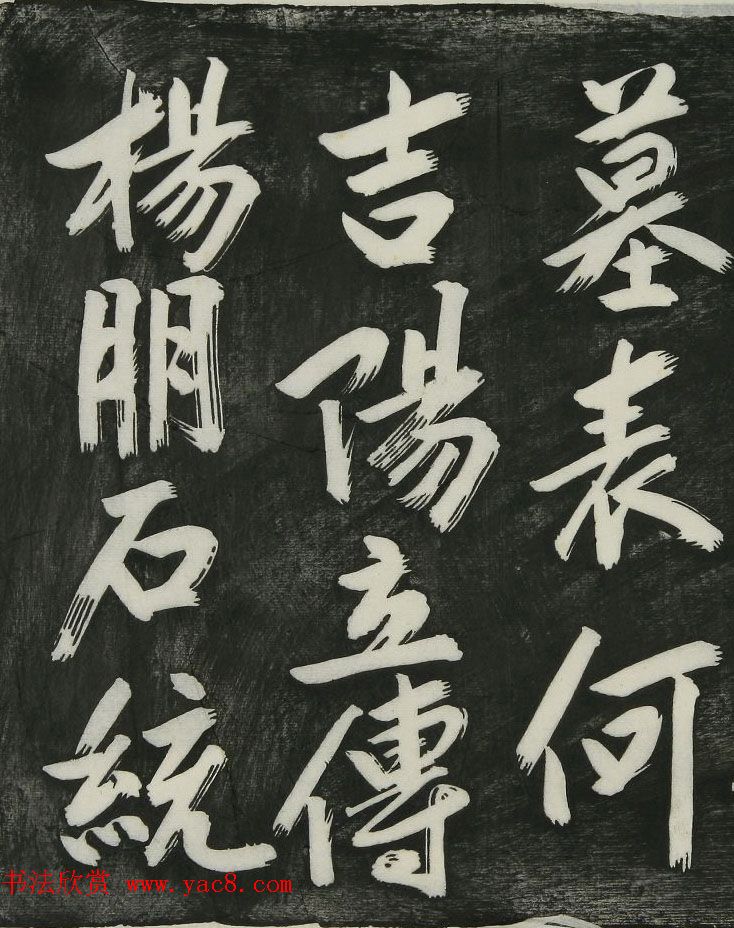 墓表何
吉陽立傳
楊朋石統
书法欣赏 www.yac8.com